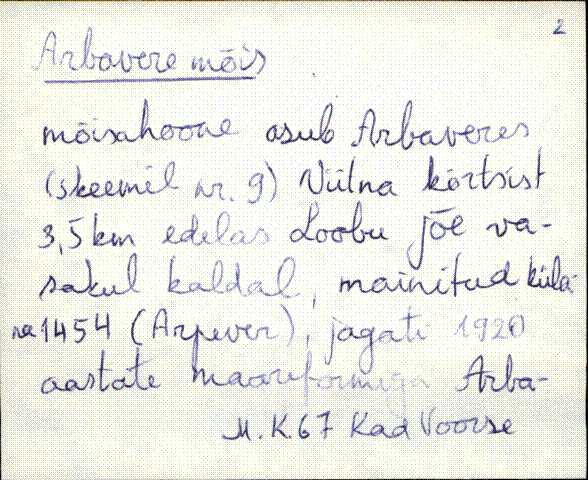 2
Arbavere mõis
mõisahoone asub Arbaveres
(skeemil nr. 9) Viitna kõrtsist
3,5 km edelas Loobu jõe va-
sakul kaldal, mainitud küla-
na 1454 (Arpever), jagati 1920
aastate maareformiga Arba-
M.K. 67 Kad Voorse